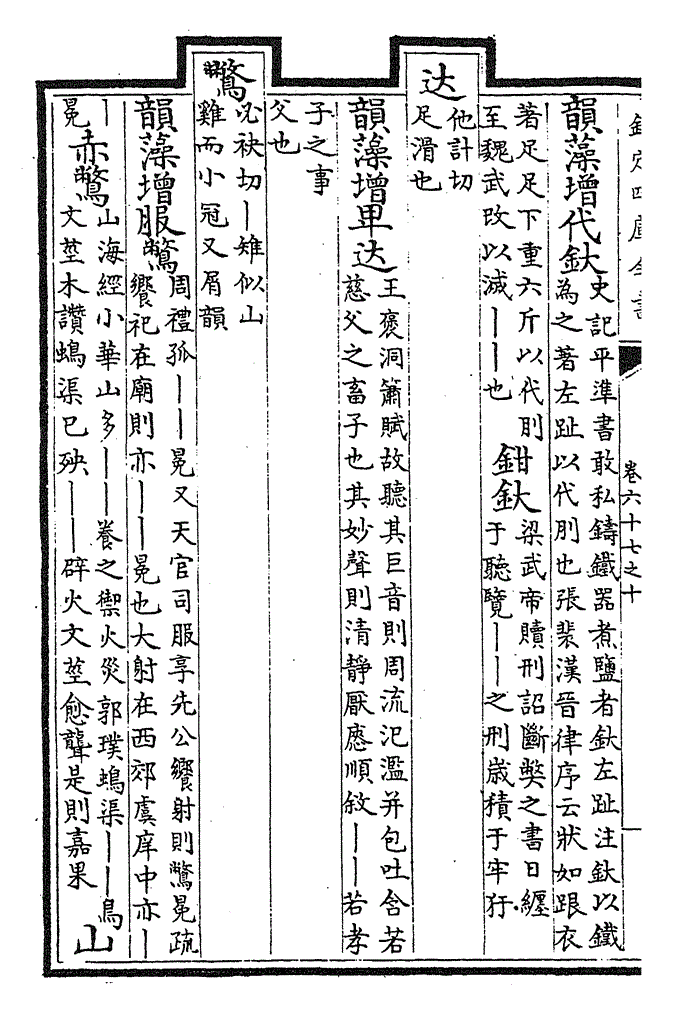 欽定四庫全書　卷六十七之十　一
韻藻增代釱
史記平準書敢私鑄鐵器煮鹽者釱左趾注釱以鐵
為之著左趾以代刖也張裴漢晉律序云狀如跟衣
著足足下重六斤以代刖
至魏武改以減——也
鉗釱
梁武帝贖刑詔斷獘之書日纏
于聽覽——之刑歲積于牢犴
达
他計切
足滑也
韻藻增卑达
王褒洞簫賦故聽其巨音則周流氾濫并包吐含若
慈父之畜子也其妙聲則清靜厭應順敘——若孝
子之事
父也
鷩
必袂切—雉似山
雞而小冠又屑韻
韻藻增服鷩
周禮孤——冕又天官司服享先公饗射則鷩冕疏
饗祀在廟則亦——冕也大射在西郊虞庠中亦—
—
冕
赤鷩
山海經小華山多——養之禦火災郭璞䲴渠——鳥
文莖木讚䲴渠已殃——辟火文莖愈聾是則嘉果
山